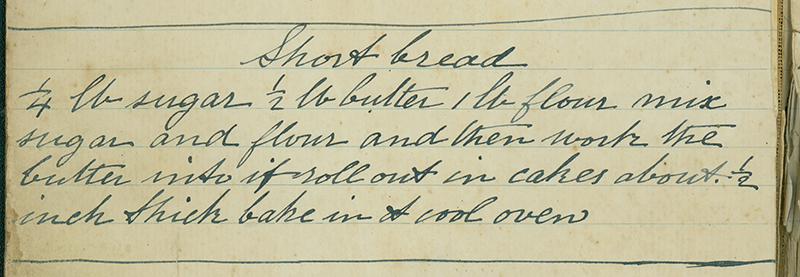 Short bread
1/4 lb sugar 1/2 lb butter 1 lb flour mix
sugar and flour and then work the
butter into it roll out in cakes about 1/2
inch thick bake in a cool oven